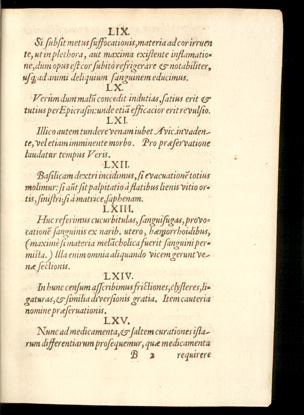 LIX.
Si subsit metus suffocationis, materia ad cor irruen
te, ut in plethora, aut maxima existente inflamatio-
ne, dum opus est cor subitò refrigerare & notabiliter,
usq; ad animi deliquium sanguinem educimus.
LX.
Verùm dum malū concedit indutias, satius erit &
tutius per Epicrasin: unde etiā efficacior erit revulsio.
LXI.
Illico autem tundere venam iubet Avic. invaden-
te, vel etiam imminente morbo. Pro præservatione
laudatur tempus Veris.
LXII.
Basilicam dextri incidimus, si evacuationē totius
molimur: si aūt sit palpitatio à flatibus lienis vitio or-
tis, sinistri: si à matrice, saphenam.
LXIII.
Huc referimus cucurbitulas, sanguisugas, provo-
cationē sanguinis ex narib. utero, hæmorrhoidibus,
(maximè si materia melācholica fuerit sanguini per-
mista.) Illa enim omnia aliquando vicem gerunt ve-
næ sectionis.
LXIV.
In hunc censum asscribimus frictiones, clysteres, li-
gaturas, & similia diversionis gratia. Item cauteria
nomine præservationis.
LXV.
Nunc ad medicamenta, & saltem curationes ista-
rum differentiarum prosequemur, quæ medicamenta
B 2 requirere